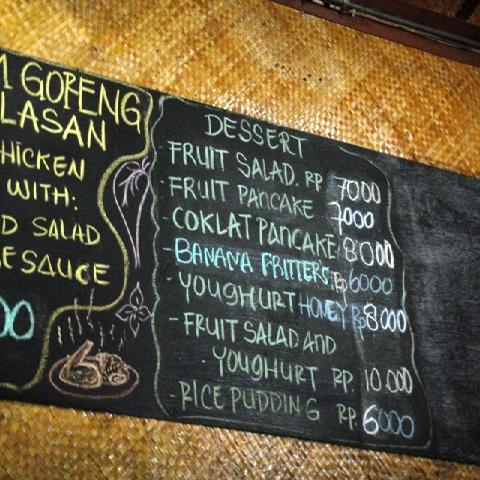 GORENG
LASAN
HICKEN
WITH:
D SALAD
SAUCE
00
DESSERT
-FRUIT SALAD. RP 7000
-FRUIT PANCAKE 7000
-COKLAT PANCAKE 8000
-BANANA FRITTERS Rp 6000
-YOUGHURT HONEY Rp 8000
-FRUIT SALAD AND
YOUGHURT RP. 10.000
-RICE PUDDING RP. 6000